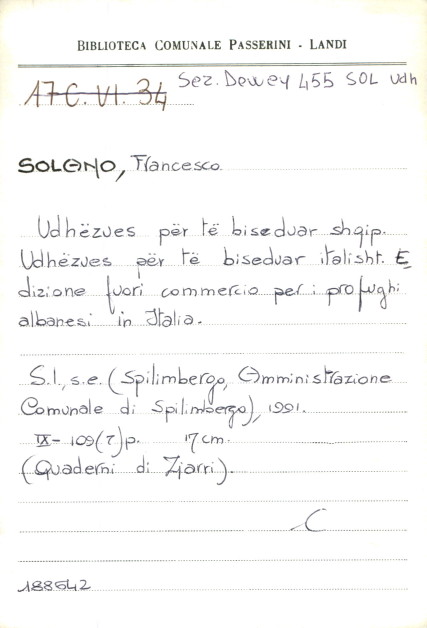 BIBLIOTECA COMUNALE PASSERINI - LANDI
17 C. VI. 34 Sez. Dewey 455 SOL Udh
SOLANO, Francesco
Udhëzues për të biseduar shqip.
Udhëzues për të biseduar italisht. E
dizione fuori commercio per i profughi
albanesi in Italia.
S.l., s.e. (Spilimbergo, Amministrazione
Comunale di Spilimbergo), 1991.
IX - 109(7)p. 17 cm.
(Quaderni di Zjarri).
C
188642